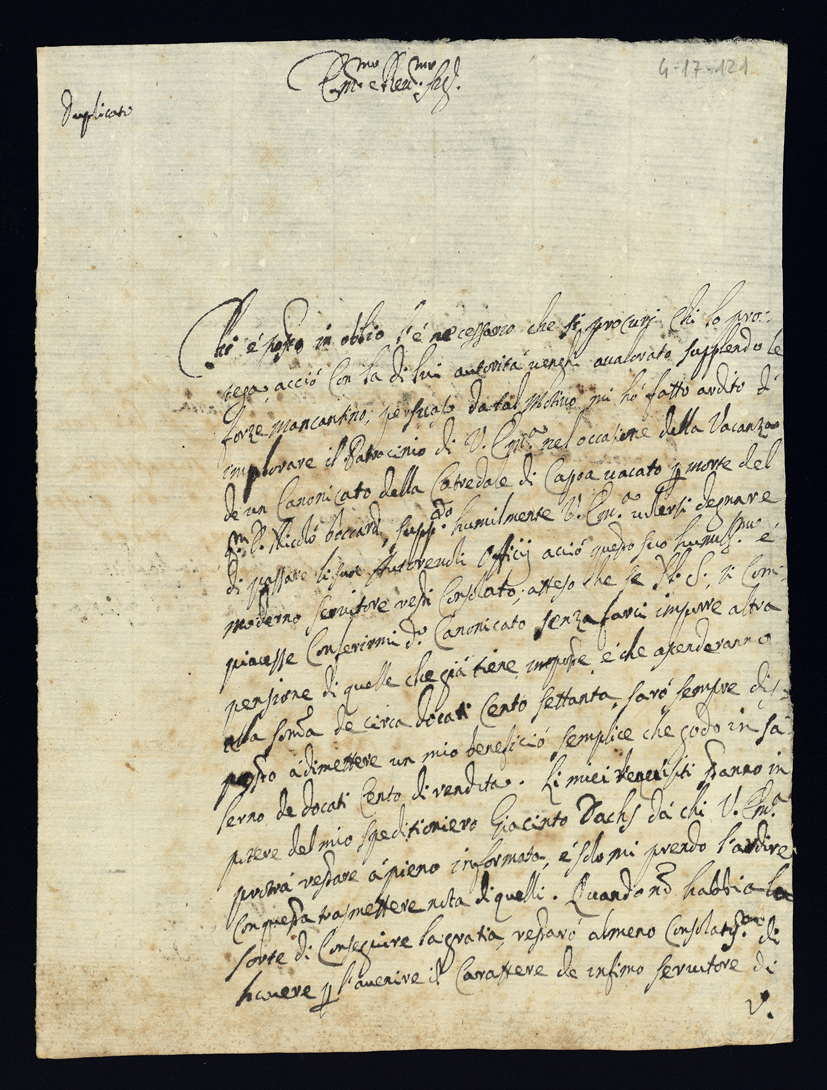 4-17-121
Em.mo e Reu.mo Sig.
Duplicato
Chi è posto in oblio l'è necessario che si procuri Chi lo pro-
tega, acciò Con la di lui autorità uenghi aualorato supplendo le
forze mancantino; persuaso da tal Motiuo mi hò fatto ardito d'
implorare il Patrocinio di V. Em.za nel occasione della Vacanza
de un Canonicato della Catredale di Capoa uacato p morte del
q.m D. Nicolò boccard, supp.do humilmente V. Em.a uolersi degnare
di passare li suoi Autoreuoli Officij acciò questo suo humiliss.mo é
moderno seruitore resti Consolato; atteso che se N. S. si Com-
piacesse Conferirmi d.o Canonicato senza farci imporre altra
pensione di quelle che già tiene imposte, é che ascenderanno
alla soma de circa docati Cento settanta, sarò sempre dis-
posto à dimettere un mio beneficio semplice che godo in Sa-
lerno de docati Cento di rendita. Li miei requisiti stanno in
potere del mio speditioniero Giacinto Dachs dà chi V. Em.a
potrà restare à pieno informata, é solo mi prendo l'ardire
Con questa trasmettere nota di quelli. Quando nõ habbia la
sorte di Conseguire la gratia, restarò almeno Consolatis.mo di
hauere p l'auenire il Carattere de infimo seruitore di
V.